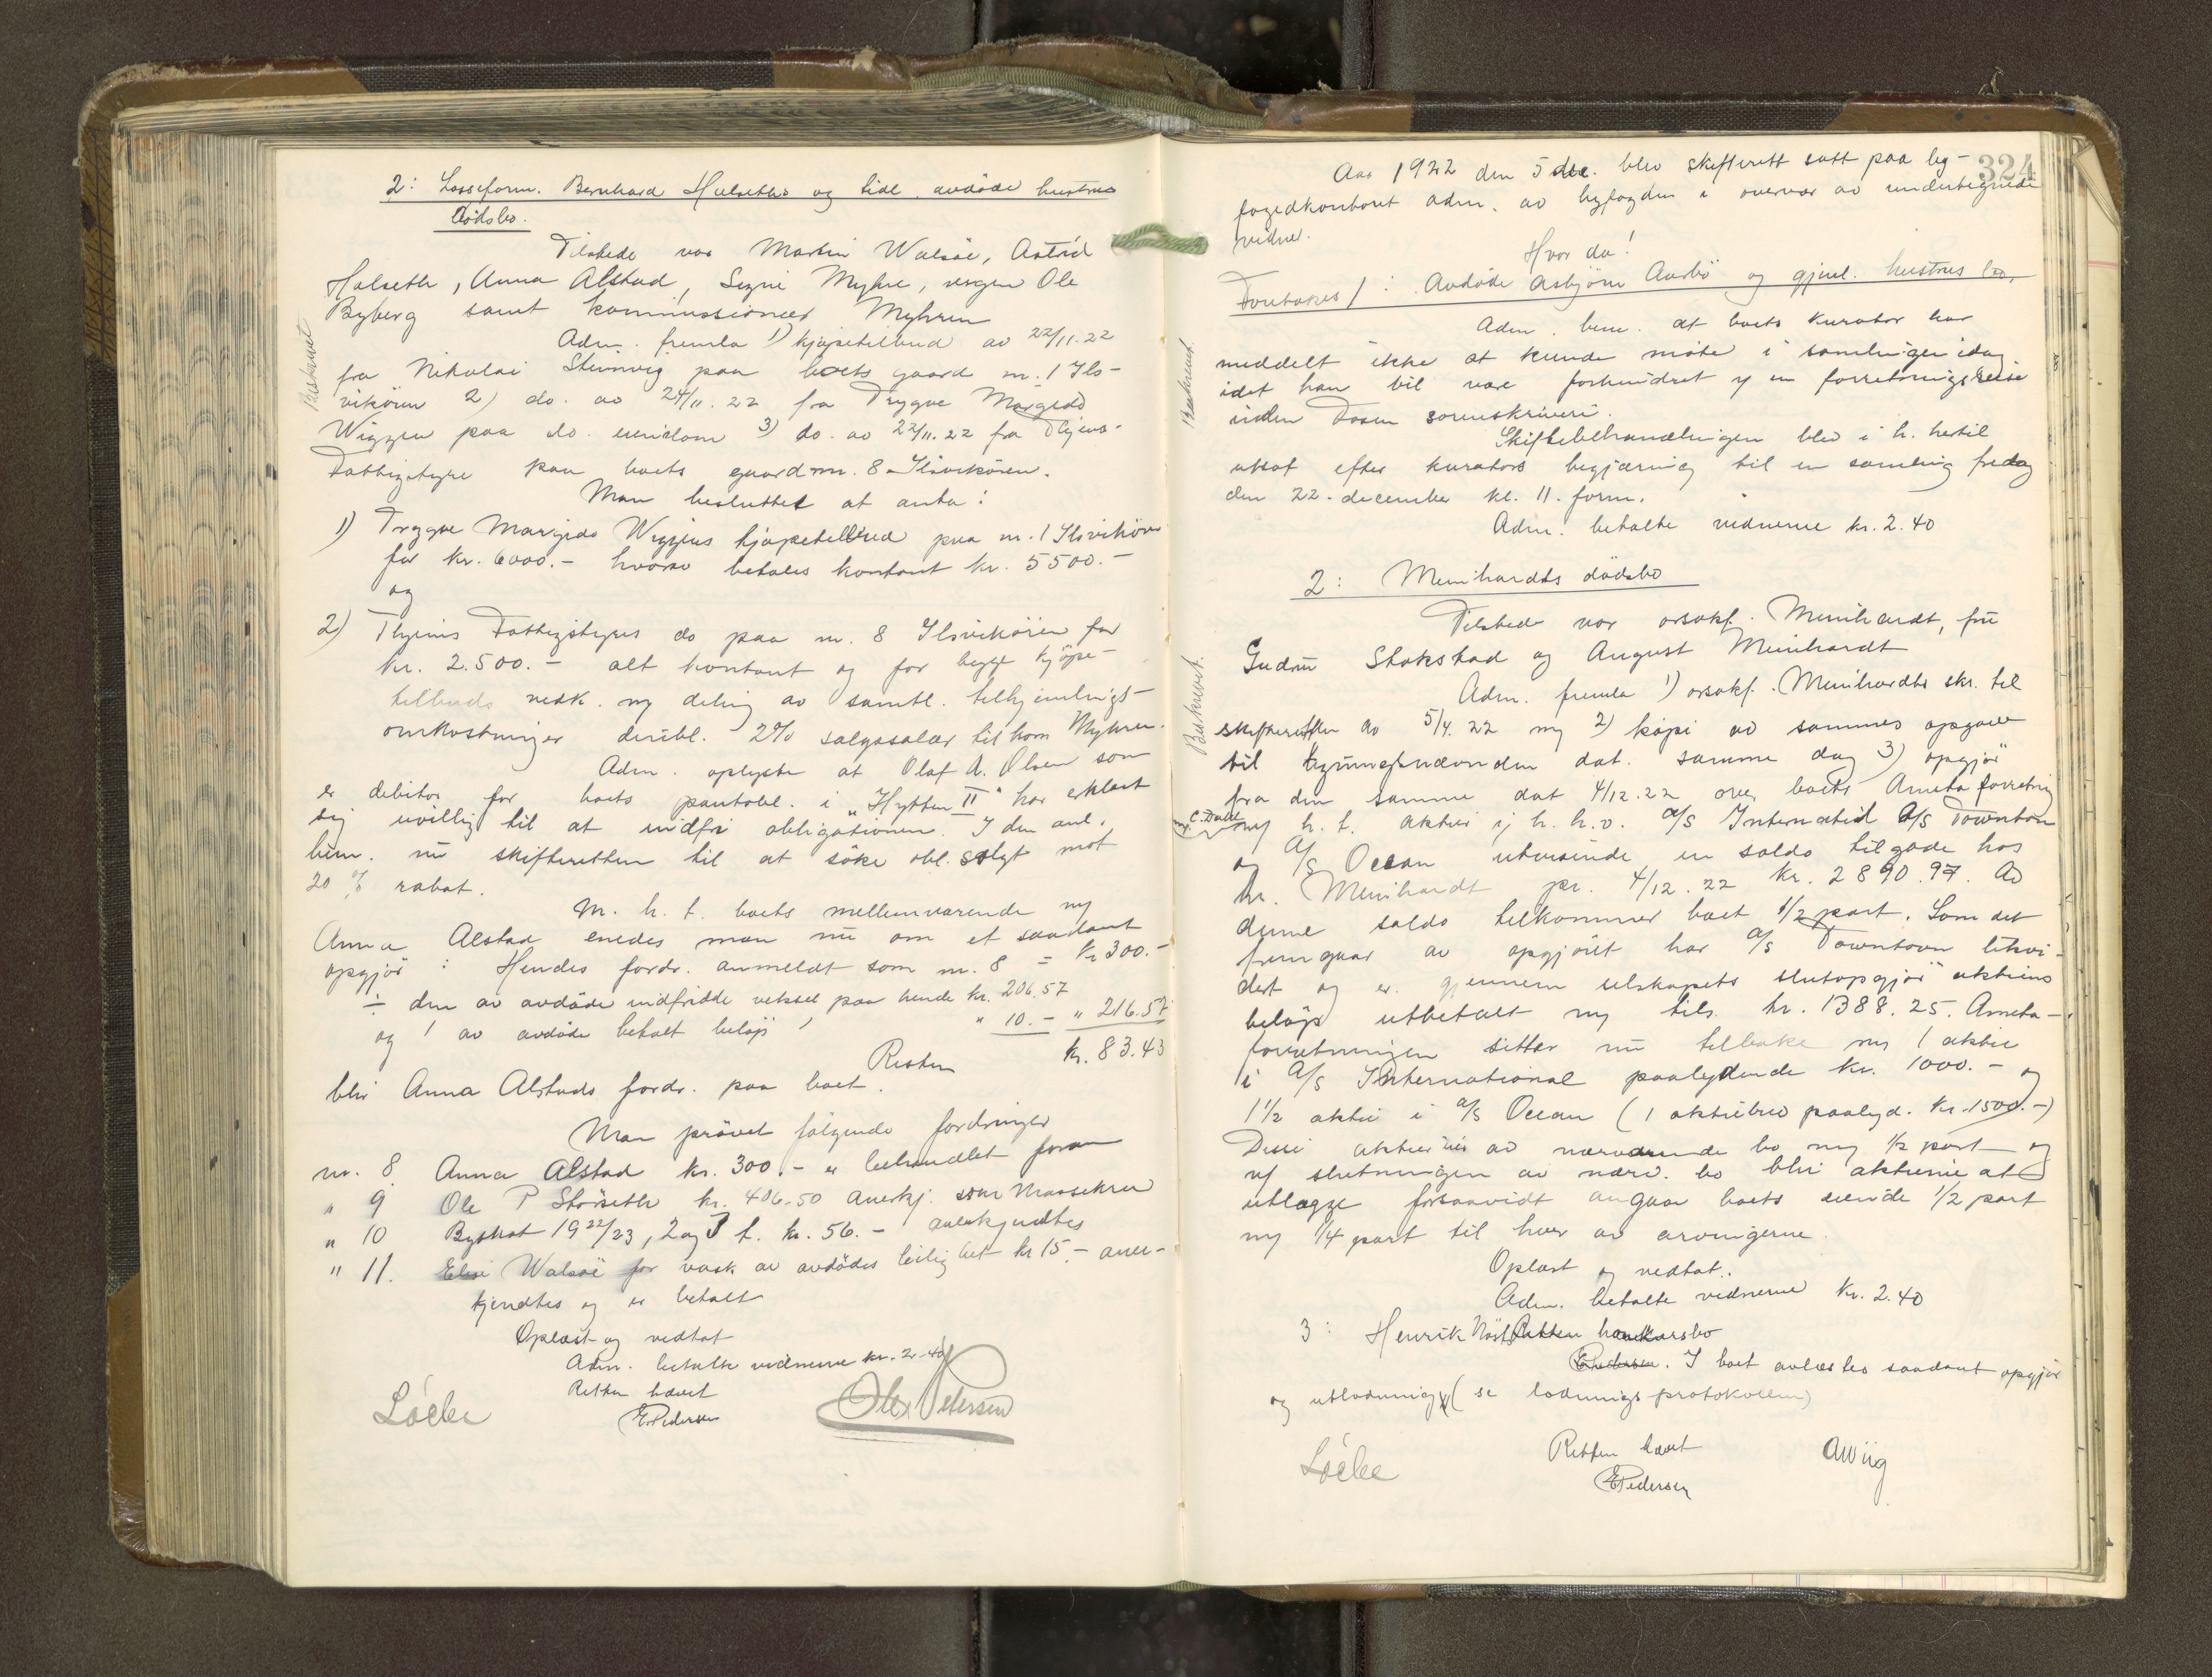 2: Losseform. Bernhard Halseths og tidl. avdøde hustrus
dødsbo.
Tilstede var Martin Walsöe, Astrid
Halseth, Anna Alstad, Signe Myhre, vergen Ole
Byberg samt kommissionær Myhren
Beskrevet
Adm. fremla 1) kjøpetilbud av 22/11.22
fra Nikolai Steinvig paa boets gaard nr. 1 Ils-
vikören 2) do. av 24/11.22 fra Trygve Margido
Wiggen paa do. eiendom 3) do. av 22/11.22 fra Thjems-
Fattigstyre paa boets gaard nr. 8 Ilsvikören.
Man besluttet at anta:
1) Trygve Margido Wiggens kjøpetilbud paa nr. 1 Ilsvikören
for kr. 6000.- hvorav betales kontant kr. 5500.-
og
2) Thjems Fattigstyres do paa nr. 8 Ilsvikören for
kr. 2.500.- alt kontant og for begge kjöpe-
tilbuds vedk. mg deling av samtl. tilhjemlings-
omkostninger deribl. 2% salgssalær til kom Myhren.
Adm. oplyste at Olaf A. Olsen som
er debitor for boets pantobl. i "Hytten II" har erklært
sig uvillig til at indfri obligationen. I den anl.
bem. nu skifteretten til at søke obl. solgt mot
20 % rabat.
M. h. t. boets mellemværende mg
Anna Alstad enedes man nu om et saadant
opgjör: Hendes fordr. anmeldt som nr. 8 = kr 300.-
÷ den av avdøde indfridde veksel paa hende kr. 206.57
og 1 av avdøde betalt beløp " 10.- " 216.57
Resten kr. 83.43
blir Anna Alstads fordr. paa boet.
Man prövet følgende fordringer
nr. 8 Anna Alstad kr. 300.- er behandlet foran
" 9 Ole P Störseth kr. 406.50 anerkj. som Massekrav
" 10 Byskat 1922/23, 2 og 3 t. kr. 56.- anerkjendtes
" 11. Elise Walsöe for vask av avdødes leilighet kr 15.- aner-
kjendtes og er betalt
Oplæst og vedtat
Adm. betalte vidnerne kr. 2.40
Retten hævet
Löche EPedersen Ole Petersen
324
Aar 1922 den 5 dec. blev skifterett satt paa by-
fogedkontoret adm. av byfogden i overvær av undertegnede
vidner.
Hvor da!
Foretokes 1: Avdøde Asbjörn Aarbö og gjenl. hustrus bo,
Beskrevet.
Adm. bem. at boets kurator har
meddelt ikke at kunde møte i samlingen idag
idet han vil være forhindret p en forretningsreise
inden Fosen sorenskriveri.
Skiftebehandlingen blev i h. hertil
utsat efter kurators begjæring til en samling fredag
den 22. december kl. 11. form.
Adm. betalte vidnerne kr. 2.40
2: Meinhardts dødsbo
Tilstede var orsakf. Meinhardt, fru
Gudrun Stokstad og August Meinhardt
Beskrevet.
Adm. fremla 1) orsakf. Meinhardts skr. til
skifteretten av 5/4.22 mg 2) kopi av sammes opgave
til ligningsnævnden dat. samme dag 3) opgjör
fra den samme dat 4/12.22 over boets Ameta forretning
m/ C. Dahl
mg h. t. aktier i h. h. v. A/S Internat'l A/S Downtown
og A/S Ocean utvisende en saldo tilgode hos
hr. Meinhardt pr. 4/12.22 kr. 2890.97. Av
denne saldo tilkommer boet 1/2 part. Som det
fremgaar av opgjöret har A/S Downtown likvi-
dert og er gjennem selskapets slutopgjör aktiens
beløp utbetalt mg tils. kr. 1388.25. Ameta-
forretningen sitter nu tilbake mg 1 aktie
i A/S International paalydende kr. 1000.- og
1 1/2 aktie i A/S Ocean (1 aktiebrev paalyd. kr. 1500.-)
Disse aktier eies av nærværende bo mg 1/2 part og
vf slutningen av nærv. bo blir aktierne at
utlægge forsaavidt angaar boets eiende 1/2 part
mg 1/4 part til hver av arvingerne.
Oplæst og vedtat.
Adm. betalte vidnerne kr. 2.40
3: Henrik konkursbo
I boet avlæstes saadant opgjör
og utlodning (se lodningsprotokollen)
Retten hævet
Löche EPedersen AWiig